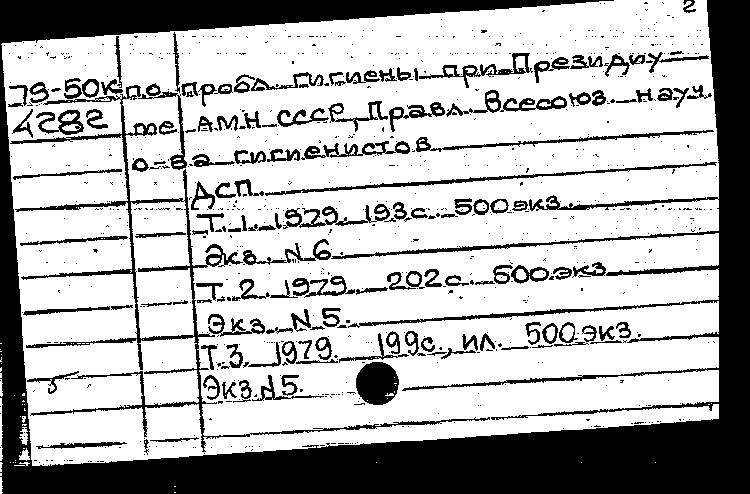 2
79-50к по пробл. гигиены при Президиу-
4282 ме АМН СССР, Правл. Всесоюз. науч.
о-ва гигиенистов
ДСП.
Т. 1. 1979. 193с. 500экз.
Экз. N 6.
Т. 2. 1979. 202с. 500экз.
Экз. N 5.
Т. 3. 1979. 199с., ил. 500экз.
Экз. N 5.
5